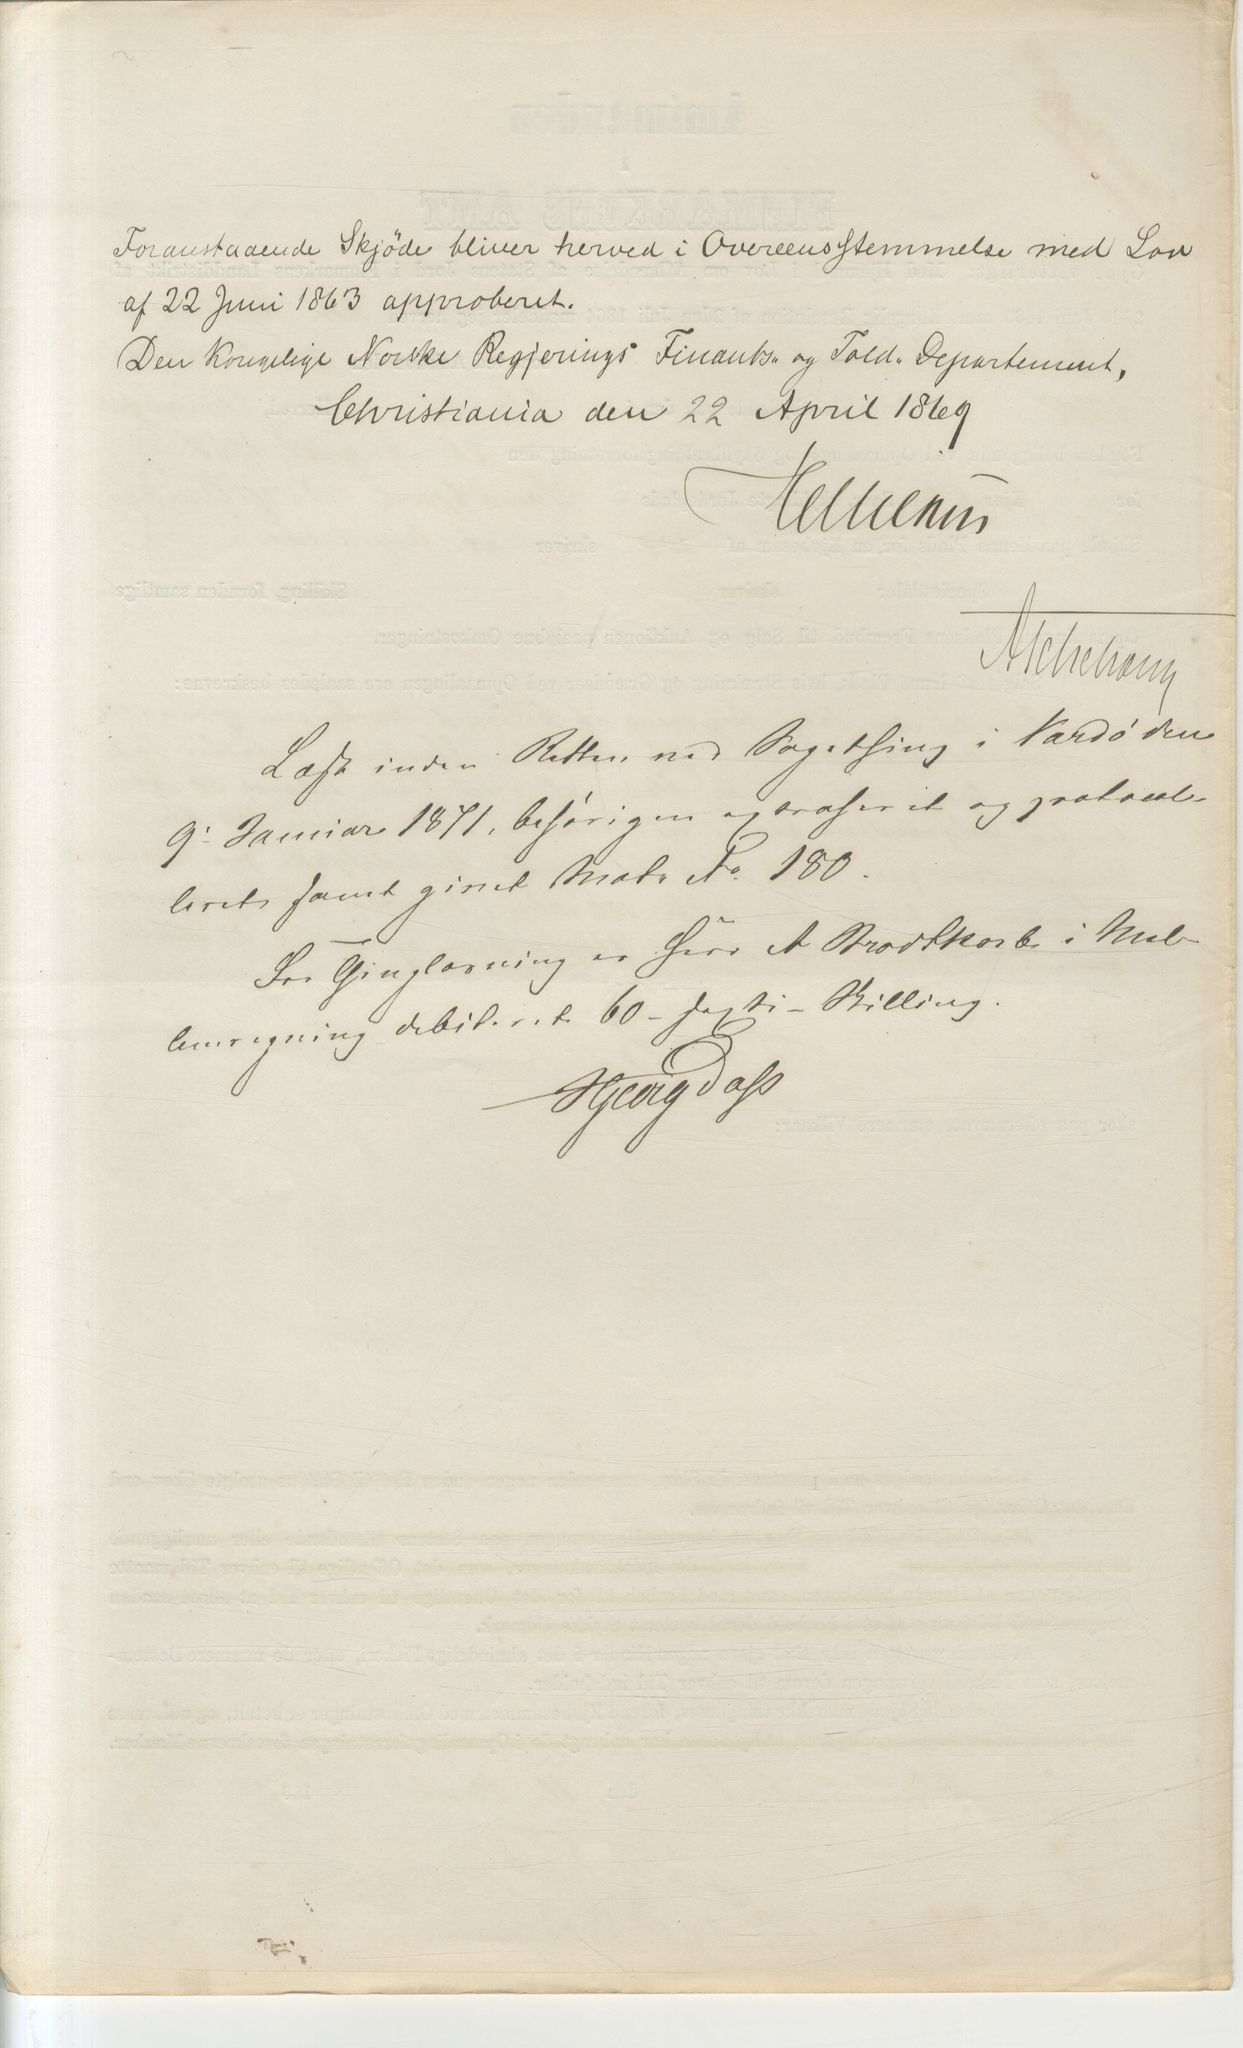 Foranstaaende Skjøde bliver herved i Overeensstemmelse med Lov
af 22 Juni 1863 approberet.
Den Kongelige Norske Regjerings Finants- og Told- Departement,
Christiania den 22 April 1869
Helliesen
Aschehoug
Læst inden Retten ved Sagething i Vardø den
9: Januar 1871, behørigen extraheret og protocol-
leret samt givet Matr. No. 180.
For Thinglæsning er Herr A Brodtkorb i Mel-
lemregning debiteret 60 - sexti - Skilling.
Georg Dass